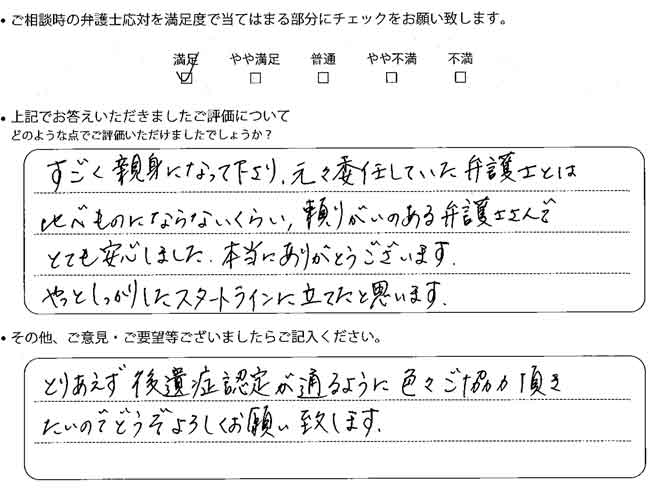 • ご相談時の弁護士応対を満足度で当てはまる部分にチェックをお願い致します。
満足 やや満足 普通 やや不満 不満
☑ □ □ □ □
• 上記でお答えいただきましたご評価について
どのような点でご評価いただけましたでしょうか？
すごく親身になって下さり、元々委任していた弁護士とは
比べものにならないくらい、頼りがいのある弁護士さんで
とても安心しました。本当にありがとうございます。
やっとしっかりしたスタートラインに立てたと思います。
• その他、ご意見・ご要望等ございましたらご記入ください。
とりあえず後遺症認定が通るように色々ご協力頂き
たいのでどうぞよろしくお願い致します。